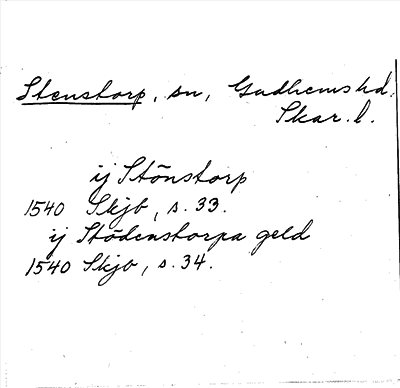 Stenstorp, sn, Gudhems hd,
Skar. l.
ij Stönstorp
1540 Skjb, s. 33.
ij Stödenstorpa geld
1540 Skjb, s. 34.